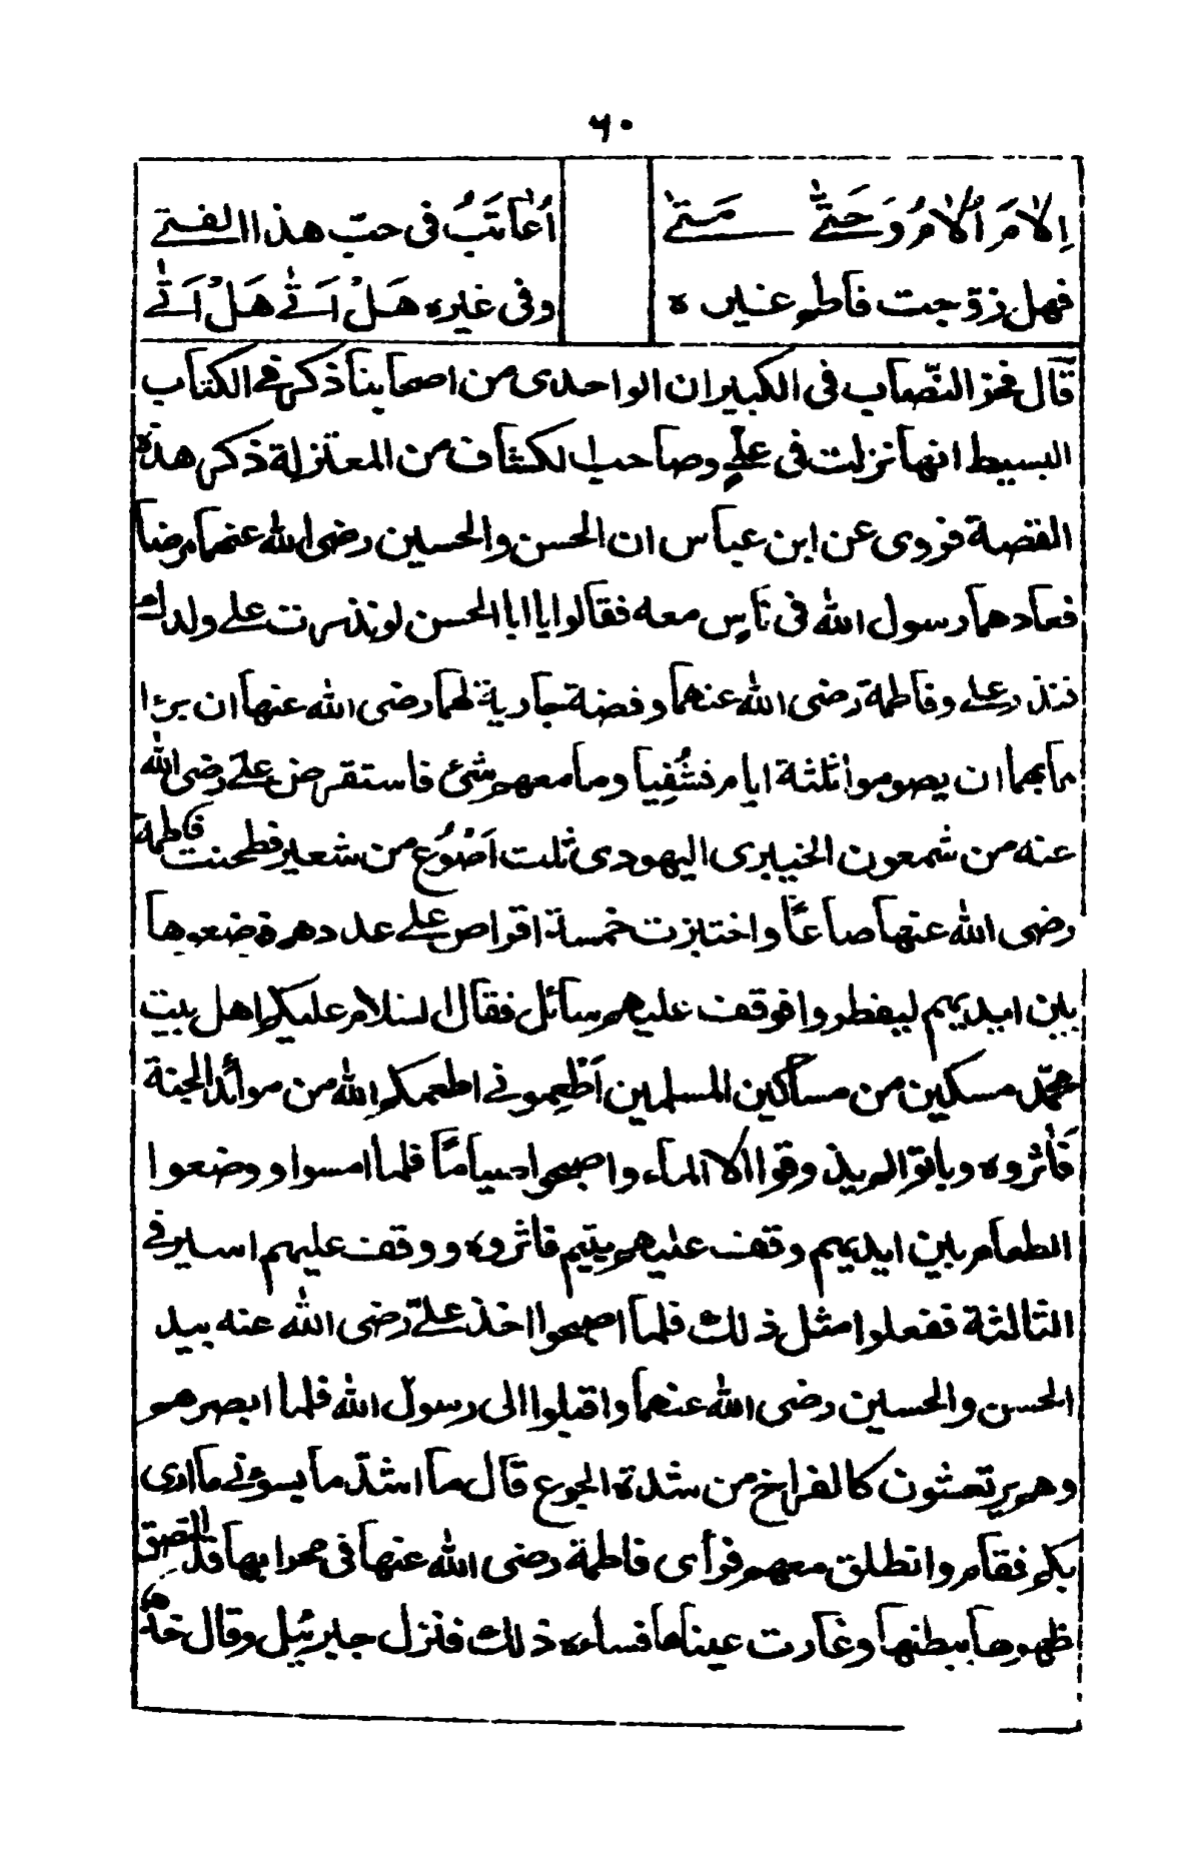 ٦٠
اِلٰامَ اُلٰامُ وَحَتّٰى مَتٰى
اُعٰاتَبُ فى حبّ هذا الفتى
فهل زوّجت فاطم غيره
وفى غيره هَلْ اَتٰى هَلْ اَتٰى
قال فخز النصاب فى الكبيران الواحدى من اصحابنا ذكر فى الكتاب
البسيط انها نزلت فى علىٍ وصاحب الكشاف من المعتزلة ذكر هذه
القصة فروى عن ابن عباس ان الحسن والحسين رضى الله عنهما مرضا
فعادهما رسول الله فى ناسٍ معه فقالوا يا ابا الحسن لو نذرت على ولدك
فنذر على وفاطمة رضى الله عنهما وفضة جارية لهما رضى الله عنها ان برئا
مابهما ان يصوموا ثلثة ايام فشُفِيا وما معهم شئ فاستقرض علىّ رضى الله
عنه من شمعون الخيبرى اليهودى ثلث اَصْوُعٍ من شعير فطحنت فاطمة
رضى الله عنها صاعًا واختبزت خمسة اقراص على عددهم فوضعوها
بين ايديهم ليفطروا فوقف عليهم سائل فقال السلام عليكم اهل بيت
محمّد مسكين من مساكين المسلمين اَطْعِمونى اطعمكم الله من موائد الجنة
فَاٰثروه وباتوا لم يذوقوا الا الماء واصبحوا صيامًا فلما امسوا ووضعوا
الطعام بين ايديهم وقف عليهم يتيم فاٰثروه ووقف عليهم اسير فى
الثالثة ففعلوا مثل ذلك فلما اصبحوا اخذ علىّ رضى الله عنه بيد
الحسن والحسين رضى الله عنهما واقبلوا الى رسول الله فلما ابصرهم
وهم يرتعشون كالفراخ من شدة الجوع قال ما اشدّ ما يسوئنى ما ارى
بكم فقام وانطلق معهم فرأى فاطمة رضى الله عنها فى محرابها قد التصق
ظهرها ببطنها وغارت عيناها فساءه ذلك فنزل جبرئيل وقال خذها